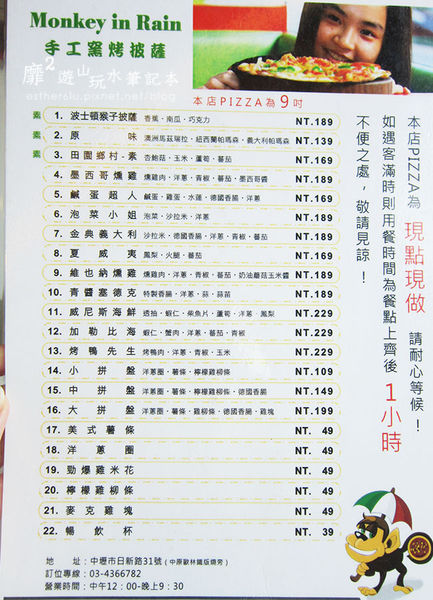 Monkey in Rain
手工窯烤披薩
靡²遊山玩水筆記本
estherolu.pixnet.net/blog
本店PIZZA為9吋
素 1. 波士頓猴子披薩 香蕉、南瓜、巧克力 NT.189
素 2. 原味 澳洲馬茲瑞拉、紐西蘭帕瑪森、義大利帕瑪森 NT.139
素 3. 田園鄉村-素 杏鮑菇、玉米、蘆筍、蕃茄 NT.169
4. 墨西哥燻雞 燻雞肉、洋蔥、青椒、蕃茄、墨西哥醬 NT.189
5. 鹹蛋超人 鹹蛋、雞蛋、水蓮、德國香腸、洋蔥 NT.189
6. 泡菜小姐 泡菜、沙拉米、洋蔥 NT.169
7. 金典義大利 沙拉米、德國香腸、洋蔥、青椒、蕃茄 NT.189
8. 夏威夷 鳳梨、火腿、蕃茄 NT.169
9. 維也納燻雞 燻雞肉、洋蔥、青椒、蕃茄、奶油蘑菇玉米醬 NT.189
10. 青醬塞德克 特製香腸、洋蔥、蒜、蒜苗 NT.189
11. 威尼斯海鮮 透抽、蝦仁、柴魚片、蘆筍、洋蔥、鳳梨 NT.229
12. 加勒比海 蝦仁、蟹肉、洋蔥、蕃茄、青椒 NT.229
13. 烤鴨先生 烤鴨肉、洋蔥、青椒、玉米 NT.229
14. 小拼盤 洋蔥圈、薯條、檸檬雞柳條 NT.109
15. 中拼盤 洋蔥圈、薯條、檸檬雞柳條、德國香腸 NT.149
16. 大拼盤 洋蔥圈、薯條、雞柳條、德國香腸、雞塊 NT.199
17. 美式薯條 NT. 49
18. 洋蔥圈 NT. 49
19. 勁爆雞米花 NT. 49
20. 檸檬雞柳條 NT. 49
21. 麥克雞塊 NT. 49
22. 暢飲杯 NT. 39
本店PIZZA為現點現做 請耐心等候！
如遇客滿時則用餐時間為餐點上齊後1小時
不便之處，敬請見諒！
地 址：中壢市日新路31號（中原歐林鐵版燒旁）
訂位專線：03-4366782
營業時間：中午12：00-晚上9：30